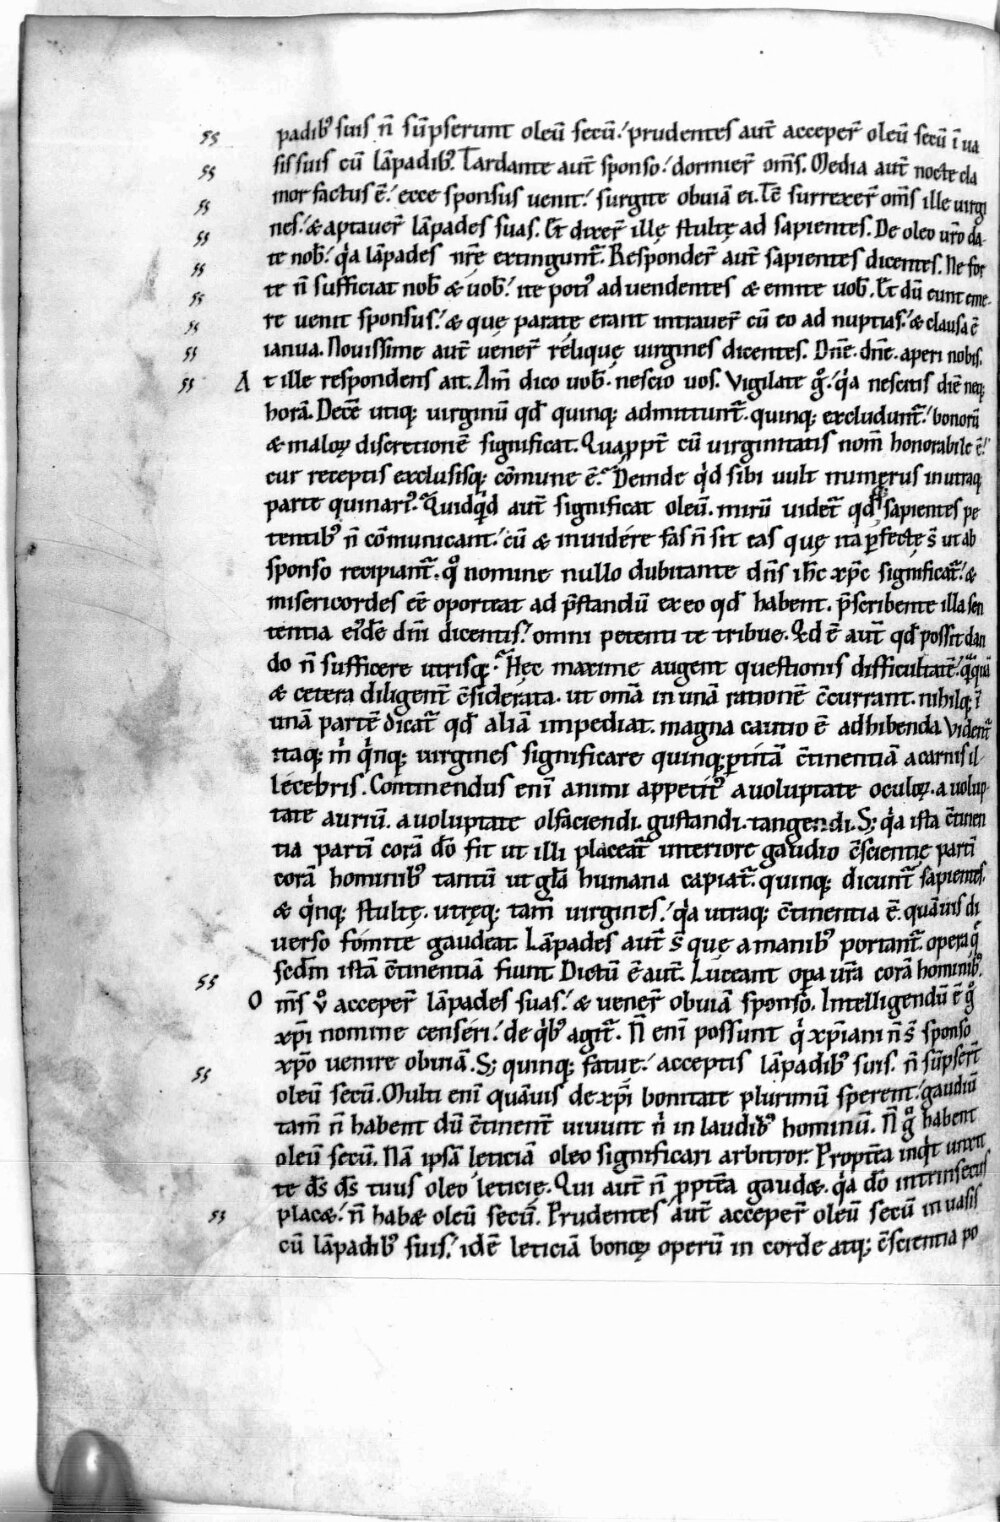 padib᷒ suis n̄ sūpserunt oleū secū. prudentes aut̄ acceper̄ oleū secū ī ua
sis suis cū lāpadib᷒. Tardante aut̄ sponso. dormier̄ om̄s. Media aut̄ nocte cla
mor factus ē. ecce sponsus uenit. surgite obuiā ei. Tē surrexer̄ om̄s ille uirgi
nes. & aptauer̄ lāpades suas. Et dixer̄ illę stultę ad sapientes. De oleo ur̄o da
te nob̄. qͥa lāpades nr̄e extingunt̄. Responder̄ aut̄ sapientes dicentes. Ne for
te n̄ sufficiat nob̄ & uob̄. ite poti᷒ ad uendentes & emite uob̄. Et dū eunt eme
re uenit sponsus. & quę paratę erant intrauer̄ cū eo ad nuptias. & clausa ē
ianua. Nouissime aut̄ uener̄ reliquę uirgines dicentes. Dn̄e. dn̄e. aperi nobis.
At ille respondens ait. Am̄ dico uob̄. nescio uos. Vigilate gͦ. qͥa nescitis diē neq;
horā. Decē utiq; uirginū qd̄ quinq; admittunt̄. quinq; excludunt̄. bonorū
& maloꝝ discretionē significat. Quappt̄ cū uirginitatis nom̄ honorabile ē.
cur receptis exclusisq; cōmune ē. Deinde qͥd sibi uult numerus in utraq;
parte quinari᷒. Quidqͥd aut̄ significat oleū. mirū uidet̄ qd̄ sapientes pe
tentib᷒ n̄ cōmunicant. cū & inuidere fas n̄ sit eas quę ita ꝑfectę s̄ ut ab
sponso recipiant̄. qͦ nomine nullo dubitante dn̄s ih̄c xp̄c significat̄. &
misericordes eē oporteat ad p̄standū ex eo qd̄ habent. p̄scribente illa sen
tentia ei᷒dē dn̄i dicentis. omni petenti te tribue. Qd ē aut̄ qd̄ possit dan
do n̄ sufficere utrisq;. Hęc maxime augent questionis difficultatē. qͣquā
& cetera diligent̄ c̄siderata. ut om̄a in unā rationē c̄currant. nihilq; ī
unā partē dicat̄ qd̄ aliā impediat. magna cautio ē adhibenda. Vident̄
itaq; m̄ qͥnq; uirgines significare quinq; ꝑtitā c̄tinentiā a carnis il
lecebris. Continendus enī animi appetit᷒ a uoluptate oculoꝝ. a uolup
tate auriū. a uoluptate olfaciendi. gustandi. tangendi. S; qͥa ista c̄tinen
tia partī corā dō fit ut illi placeat̄ interiore gaudio c̄scientię partī
corā hominib᷒ tantū ut gl̄a humana capiat̄. quinq; dicunt̄ sapientes.
& qͥnq; stultę. utręq; tam̄ uirgines. qͥa utraq; c̄tinentia ē. quāuis di
uerso fomite gaudeat. Lāpades aut̄ s̄ que a manib᷒ portant̄. opera qͥ
sedm̄ istā c̄tinentiā fiunt. Dictū ē aut̄. Luceant opa ur̄a corā hominib᷒.
Om̄s uͦ acceper̄ lāpades suas. & uener̄ obuiā sponso. Intelligendū ē gͦ
xp̄i nomine censeri. de qͥb᷒ agit̄. N̄ enī possunt qͥ xp̄iani n̄ s̄ sponso
xp̄o uenire obuiā. S; quinq; fatuę. acceptis lāpadib᷒ suis. n̄ sūpser̄t
oleū secū. Multi enī quāuis de xp̄i bonitate plurimū sperent. gaudiū
tam̄ n̄ habent dū c̄tinent̄ uiuunt nͥ in laudib᷒ hominū. N̄ gͦ habent
oleū secū. Nā ipsā leticiā oleo significari arbitror. Propt̄ea inqͥt unxit
te d̄s d̄s tuus oleo leticię. Qui aut̄ n̄ ꝓpt̄ea gaudæ. qͥa dō intrinsecus
placæ. n̄ habæ oleū secū. Prudentes aut̄ acceper̄ oleū secū in uasis
cū lāpadib᷒ suis. idē leticiā bonoꝝ operū in corde atq; c̄scientia po